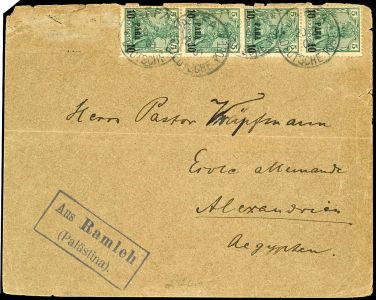 10 PARA 10
10 PARA 10
10 PARA 10
10 PARA 10
5
5
5
5
DEUTSCHE
Herrn Pastor Küpfmann
Ecole allemande
Alexandrien
Aegypten.
Aus Ramleh
(Palästina).